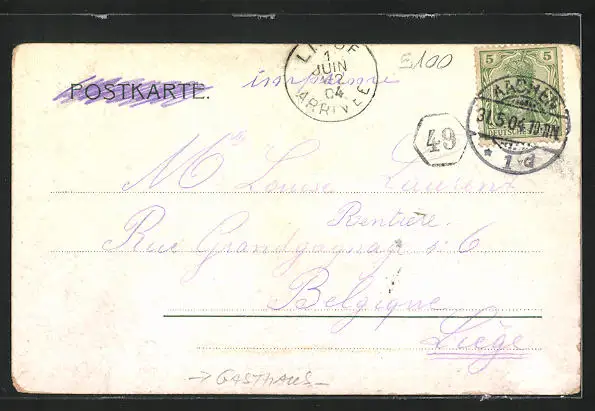 LIEGE
1
JUIN
12
04
ARRIVEE
E100
5 5
DEUTSCHES
AACHEN
31.5.04.
1 d
POSTKARTE. imprimé
49
Mlle Louise Laurent
Rentière.
Rue Grandgagnage : 6
Belgique
Liège
→ GASTHAUS -